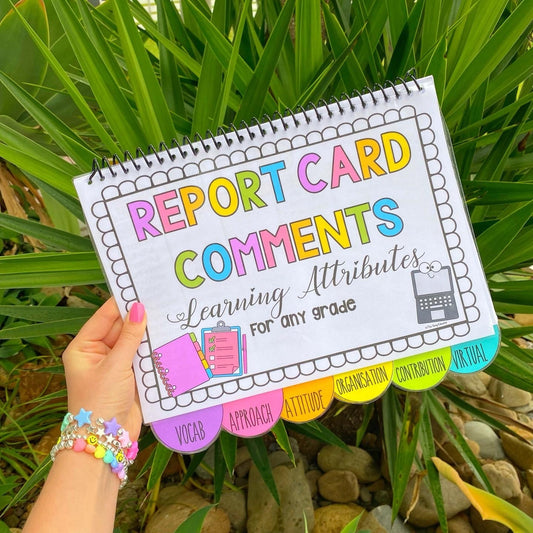 REPORT CARD
COMMENTS
Learning Attributes
for any grade
VOCAB APPROACH ATTITUDE ORGANISATION CONTRIBUTION VIRTUAL